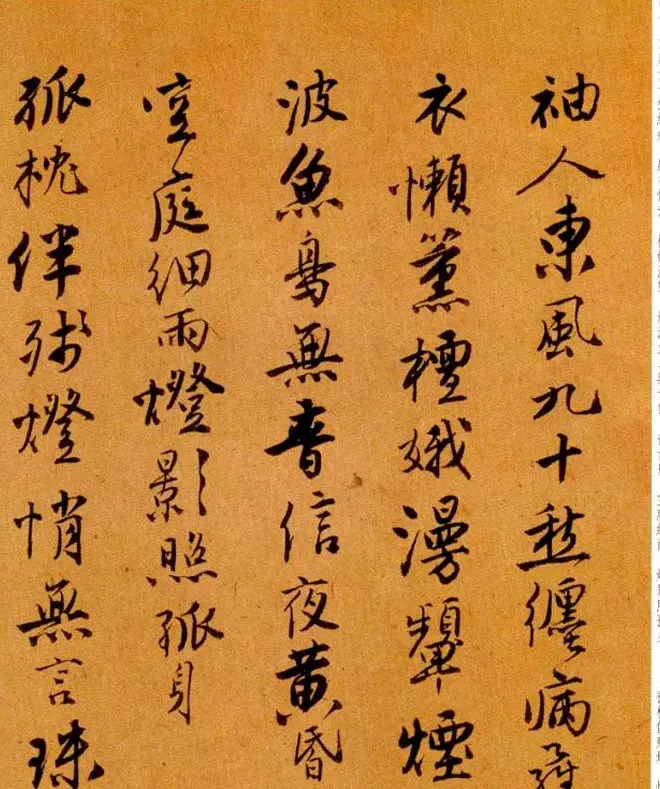 袖人東風九十愁纏病
衣懶薰檀娥漫顰煙
波魚鳥無音信夜黃昏
空庭細雨燈影照孤身
孤枕伴殘燈悄無言珠